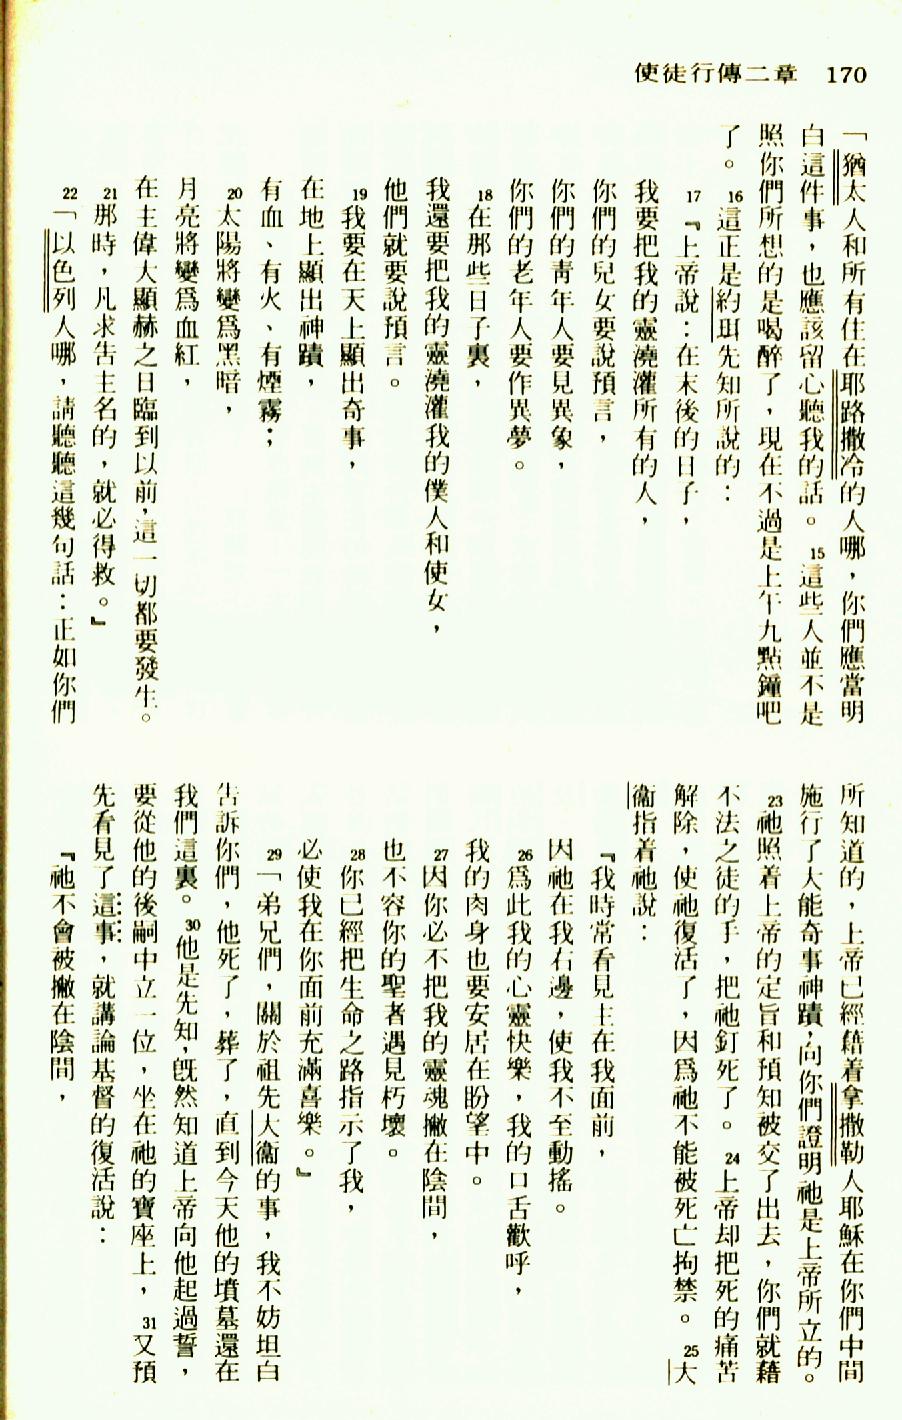 使徒行傳二章　170
「猶太人和所有住在耶路撒冷的人哪，你們應當明
白這件事，也應該留心聽我的話。15這些人並不是
照你們所想的是喝醉了，現在不過是上午九點鐘吧
了。16這正是約珥先知所說的：
17『上帝說：在末後的日子，
我要把我的靈澆灌所有的人，
你們的兒女要說預言，
你們的靑年人要見異象，
你們的老年人要作異夢。
18在那些日子裏，
我還要把我的靈澆灌我的僕人和使女，
他們就要說預言。
19我要在天上顯出奇事，
在地上顯出神蹟，
有血、有火、有煙霧；
20太陽將變爲黑暗，
月亮將變爲血紅，
在主偉大顯赫之日臨到以前，這一切都要發生。
21那時，凡求告主名的，就必得救。』
22「以色列人哪，請聽聽這幾句話：正如你們
所知道的，上帝已經藉着拿撒勒人耶穌在你們中間
施行了大能奇事神蹟，向你們證明祂是上帝所立的。
23祂照着上帝的定旨和預知被交了出去，你們就藉
不法之徒的手，把祂釘死了。24上帝却把死的痛苦
解除，使祂復活了，因爲祂不能被死亡拘禁。25大
衞指着祂說：
『我時常看見主在我面前，
因祂在我右邊，使我不至動搖。
26爲此我的心靈快樂，我的口舌歡呼，
我的肉身也要安居在盼望中。
27因你必不把我的靈魂撇在陰間，
也不容你的聖者遇見朽壞。
28你已經把生命之路指示了我，
必使我在你面前充滿喜樂。』
29「弟兄們，關於祖先大衞的事，我不妨坦白
告訴你們，他死了，葬了，直到今天他的墳墓還在
我們這裏。30他是先知，旣然知道上帝向他起過誓，
要從他的後嗣中立一位，坐在祂的寶座上，31又預
先看見了這事，就講論基督的復活說：
『祂不會被撇在陰間，